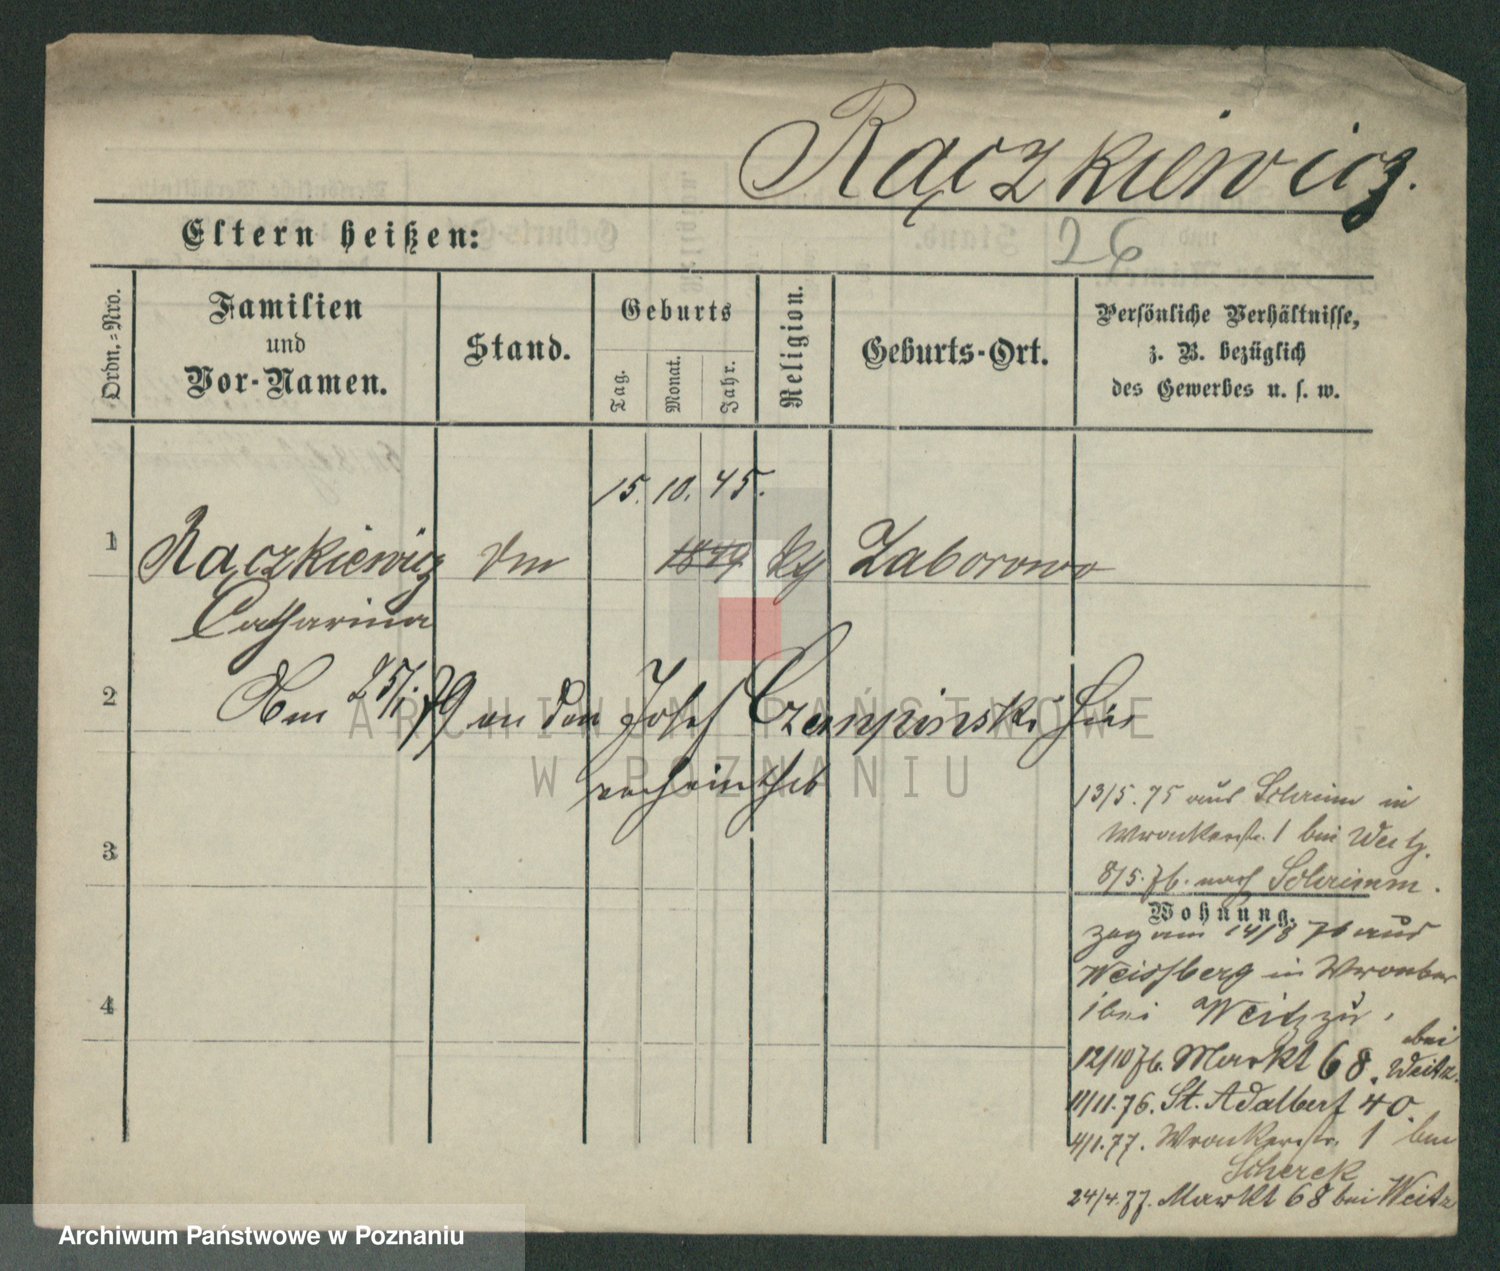 Rączkiewicz.
Eltern heißen:
26
Ordn.-Nro.
Familien
und
Vor-Namen.
Stand.
Geburts
Tag.
Monat.
Jahr.
Religion.
Geburts-Ort.
Persönliche Verhältnisse,
z. B. bezüglich
des Gewerbes u. s. w.
15. 10. 45.
1 Rączkiewicz 1849 Zaborowo
Catharina
2
Am 25/1 79 an den Josef Czempinski hier
verheirathet
3
13/5. 75 aus Schrimm in
Wronkerstr. 1 bei Weitz.
8/5. 76. nach Schrimm.
Wohnung.
zog am 14/8 76 aus
Weissberg in Wronker
1 bei Weitz zu.
4
12/10 76. Markt 68. bei
Weitz.
11/11. 76. St. Adalbert 40.
4/1. 77. Wronkerstr. 1 bei
Scherek
24/4. 77. Markt 68 bei Weitz
ARCHIWUM PAŃSTWOWE
W POZNANIU
Archiwum Państwowe w Poznaniu